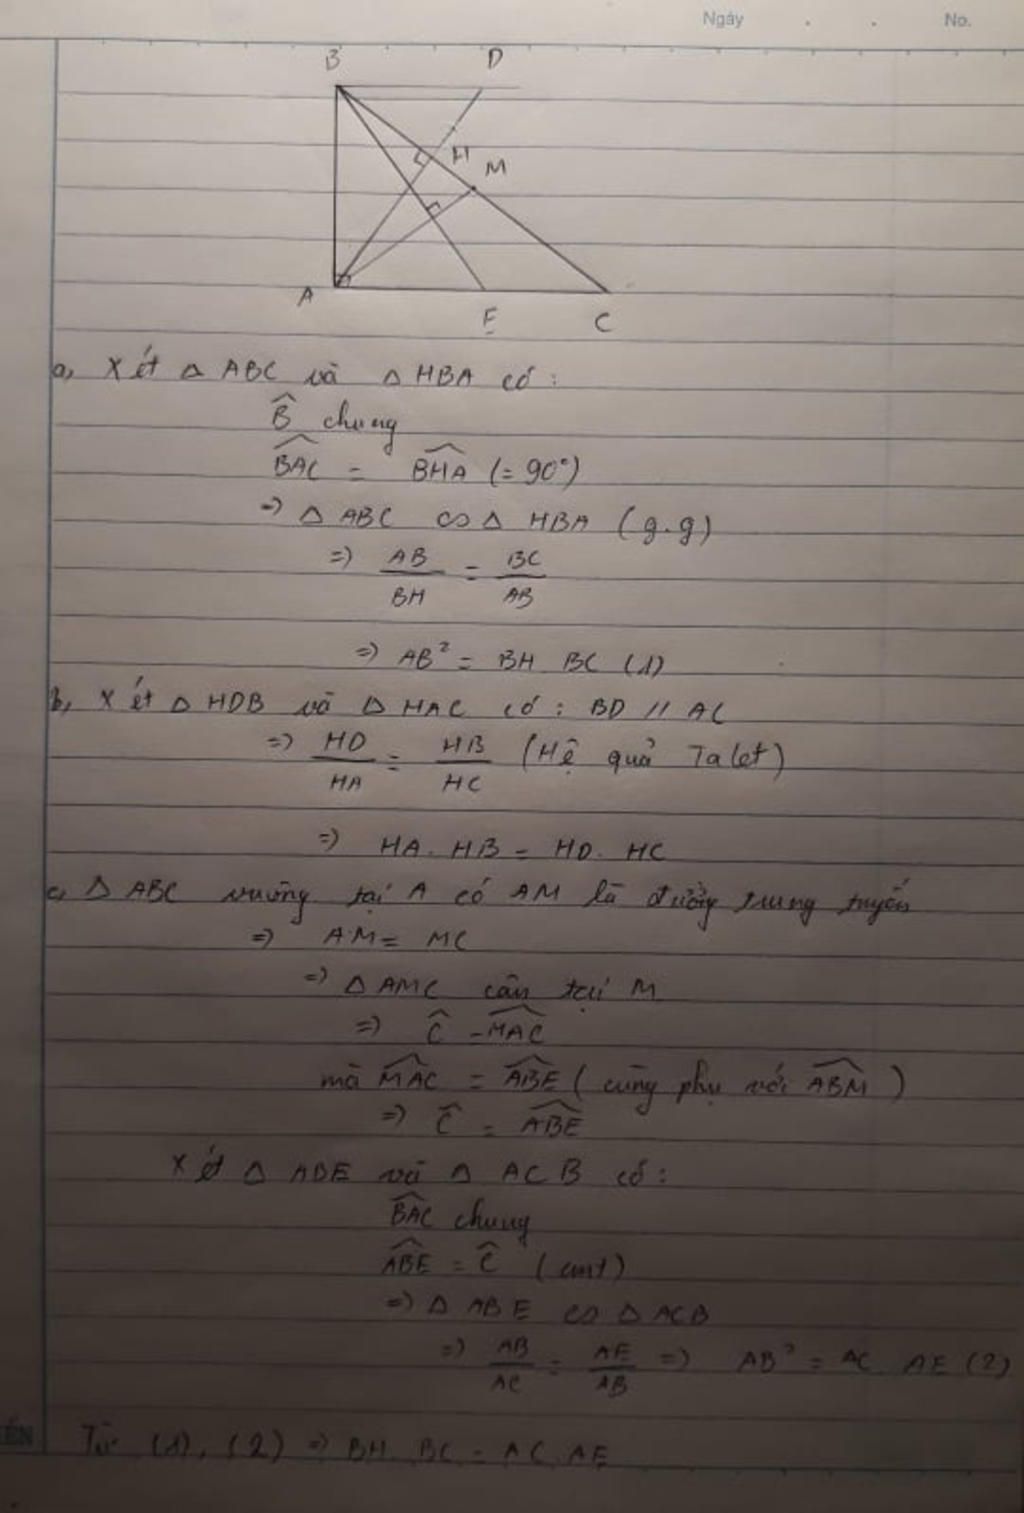 Ngày . . No.
B D
H
M
A E C
a, Xét △ ABC và △ HBA có :
B̂ chung
\widehat{BAC} = \widehat{BHA} (= 90°)
=> △ ABC ∽ △ HBA (g.g)
=> \frac{AB}{BH} = \frac{BC}{AB}
=> AB² = BH . BC (1)
b, Xét △ HDB và △ HAC có : BD // AC
=> \frac{HD}{HA} = \frac{HB}{HC} (Hệ quả Talet)
=> HA . HB = HD . HC
c, △ ABC vuông tại A có AM là đường trung tuyến
=> AM = MC
=> △ AMC cân tại M
=> Ĉ = \widehat{MAC}
mà \widehat{MAC} = \widehat{ABE} ( cùng phụ với \widehat{ABM} )
=> Ĉ = \widehat{ABE}
Xét △ ABE và △ ACB có :
\widehat{BAC} chung
\widehat{ABE} = Ĉ (cmt)
=> △ ABE ∽ △ ACB
=> \frac{AB}{AC} = \frac{AE}{AB} => AB² = AC . AE (2)
Từ (1), (2) => BH . BC = AC . AE